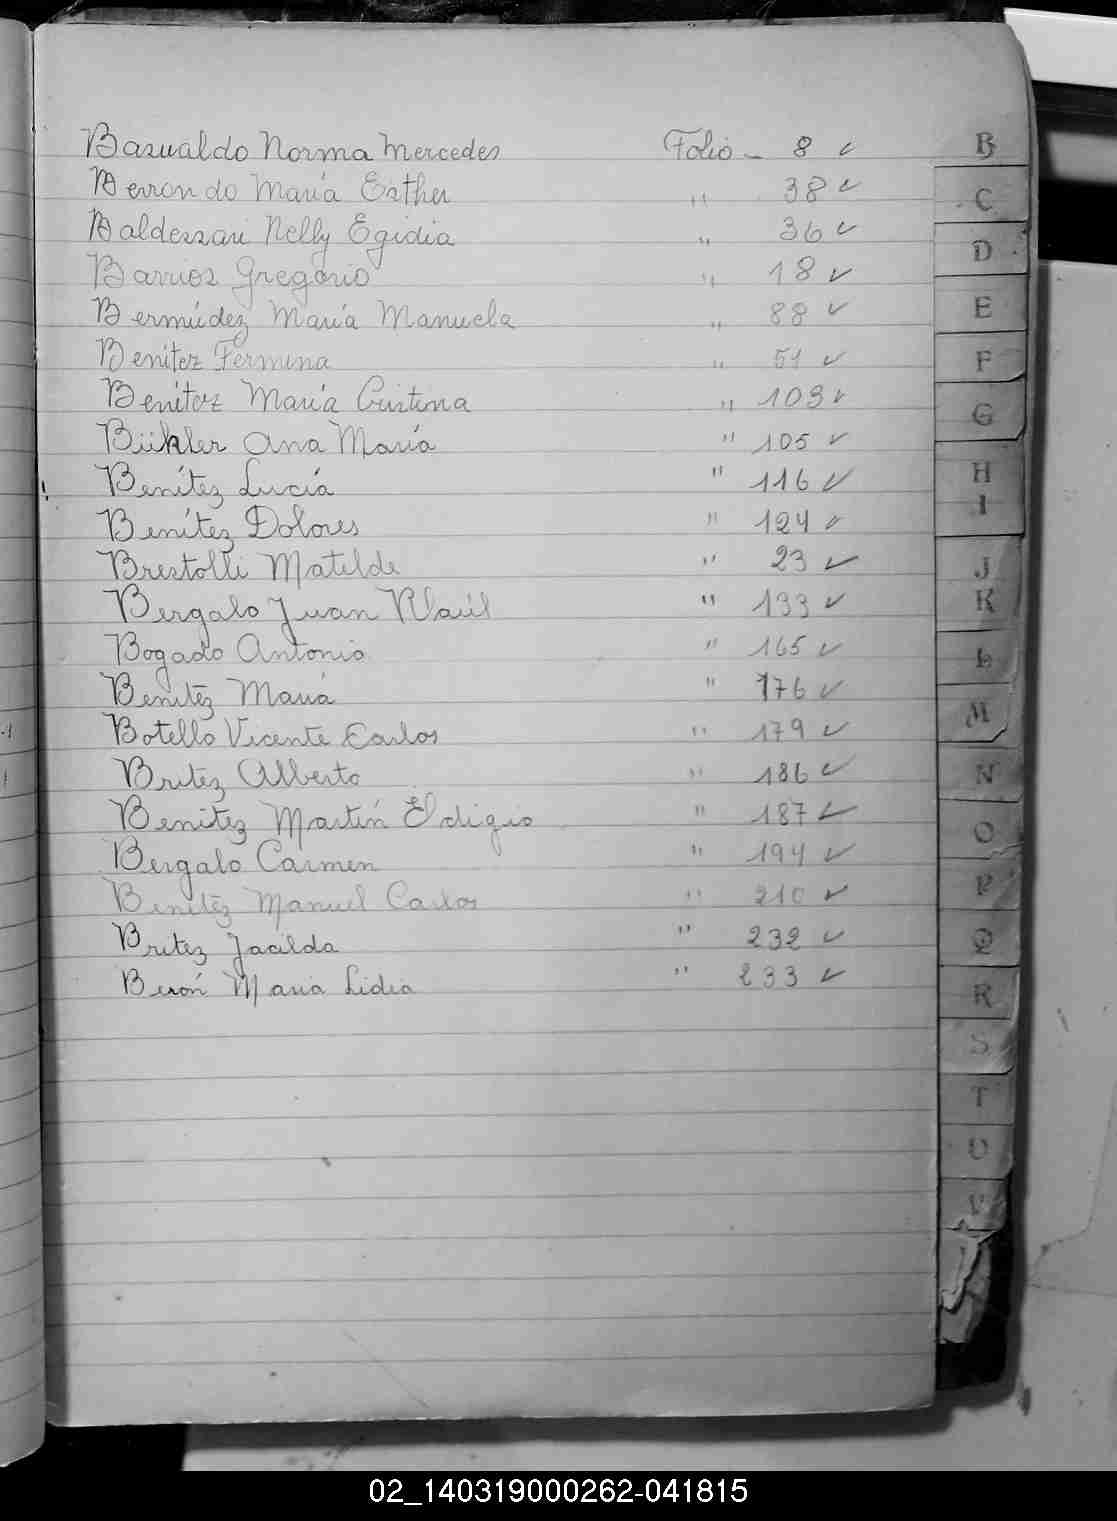 Basualdo Norma Mercedes Folio - 8 ✓
Berrondo María Esther " 38 ✓
Baldessari Nelly Egidia " 36 ✓
Barrios Gregorio " 18 ✓
Bermúdez María Manuela " 88 ✓
Benítez Fermina " 51 ✓
Benítez María Cristina " 103 ✓
Bühler Ana María " 105 ✓
Benítez Lucía " 116 ✓
Benítez Dolores " 124 ✓
Brestolli Matilde " 23 ✓
Bergalo Juan Raúl " 133 ✓
Bogado Antonio " 165 ✓
Benitez María " 176 ✓
Botello Vicente Carlos " 179 ✓
Britez Alberto " 186 ✓
Benitez Martín Eldigio " 187 ✓
Bergalo Carmen " 194 ✓
Benitez Manuel Carlos " 210 ✓
Britez Jacilda " 232 ✓
Berón Maria Lidia " 233 ✓
B
C
D
E
F
G
H
I
J
K
L
M
N
O
P
Q
R
S
T
U
V
02_140319000262-041815